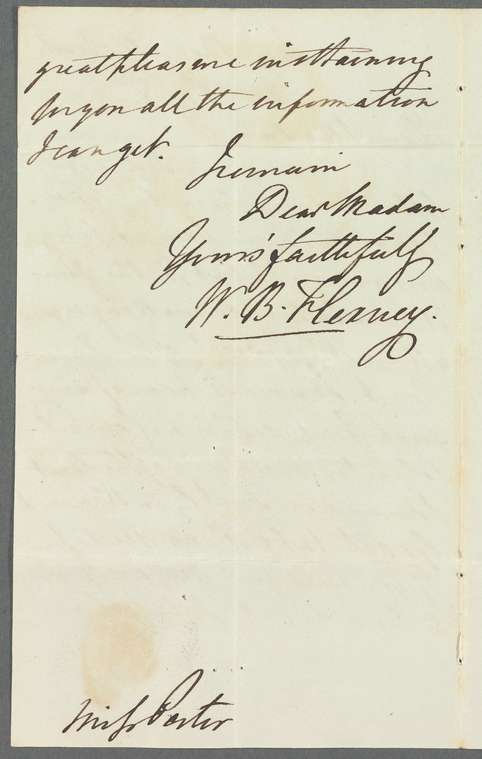 great pleasure in attaining
for you all the information
I can get.
I remain
Dear Madam
Yours' faithfully
W. B. Flexney.
Miss Porter